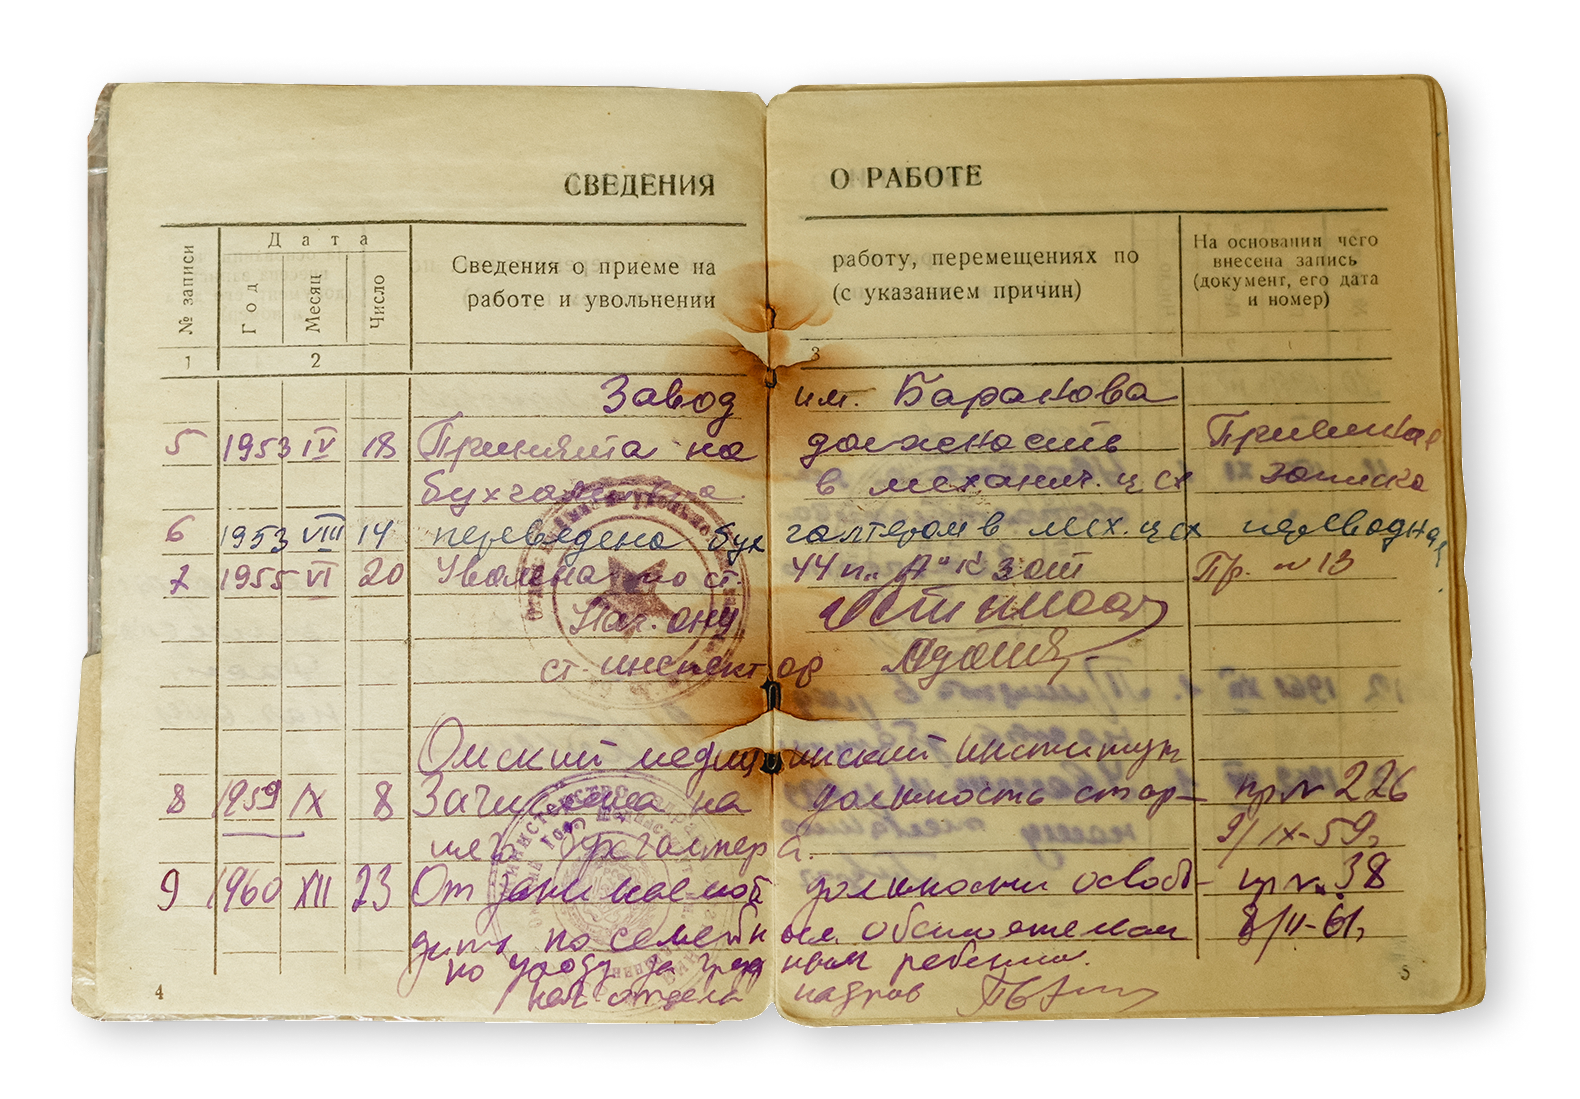 СВЕДЕНИЯ О РАБОТЕ
№ записи
Дата
Год
Месяц
Число
Сведения о приеме на работу, перемещениях по
работе и увольнении (с указанием причин)
На основании чего
внесена запись
(документ, его дата
и номер)
1 2 3
Завод им. Баранова
5 1953 IV 18 Принята на должность Приемная
бухгалтера в механич. цех записка
6 1953 VIII 14 переведена бухгалтером в мех. цех переводная
7 1955 VI 20 Уволена по ст. 44 п. "А" КЗОТ Пр. № 13
Нач. ОНУ
ст. инспектор
Омский медицинский институт
8 1959 IX 8 Зачислена на должность стар- пр № 226
шего бухгалтера. 9/IX-59г
9 1960 XII 23 От занимаемой должности освобо- пр № 38
дить по семейным обстоятельствам 8/II-61г
по уходу за грудным ребенком.
Нач отдела кадров
4
5